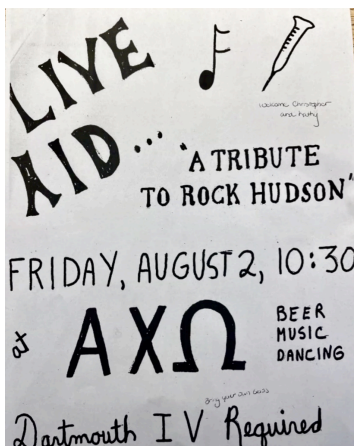 LIVE
AID...
welcome Christopher
and Kathy
"A TRIBUTE
TO ROCK HUDSON"
FRIDAY, AUGUST 2, 10:30
at ΑΧΩ
BEER
MUSIC
DANCING
Bring your own
Dartmouth IV Required